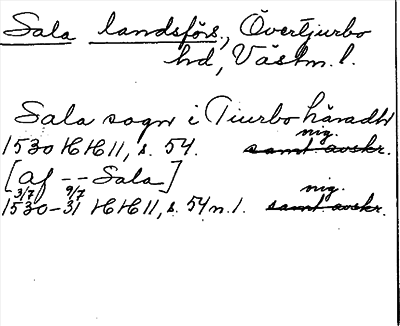 Sala landsförs., Övertjurbo
hd, Västm. l.
Sala sogn i Tiurbo häradh
nig.
1530 HH 11, s. 54. samt avskr.
[af -- Sala]
3/7 9/7 nig.
1530-31 HH 11, s. 54 n. 1. samt avskr.